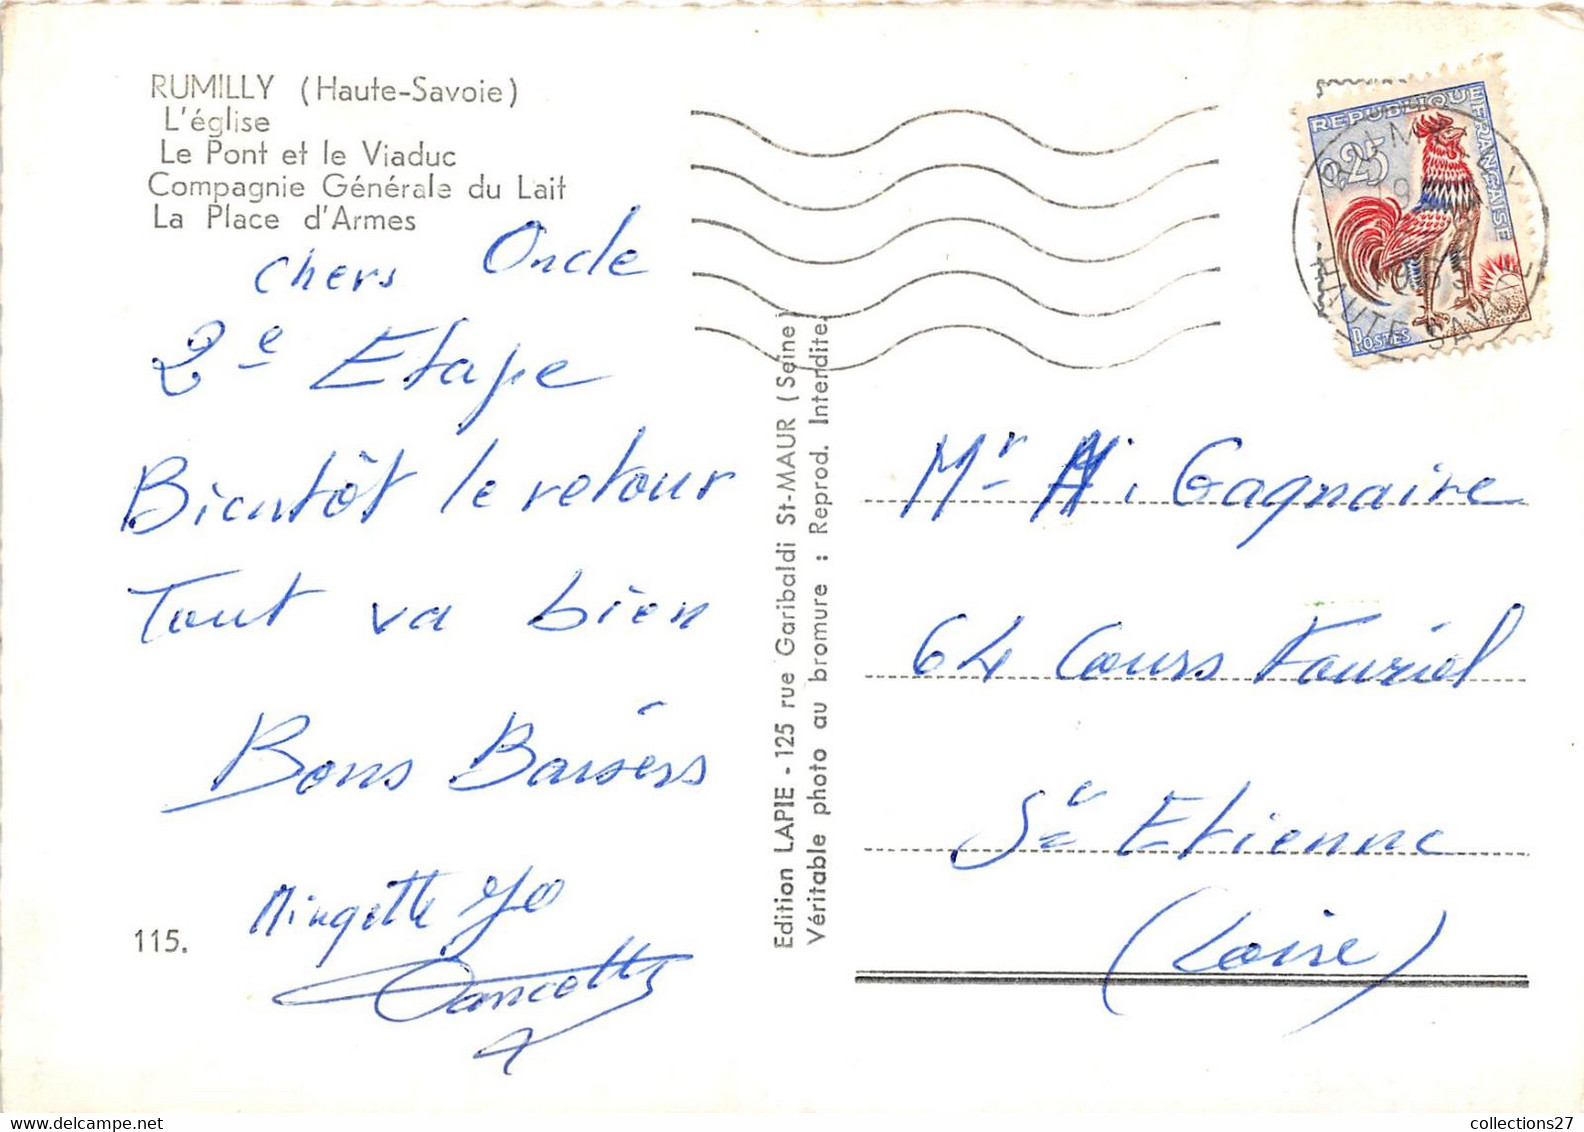 RUMILLY (Haute-Savoie)
L'église
Le Pont et le Viaduc
Compagnie Générale du Lait
La Place d'Armes
chers Oncle
2e Etape
Bientôt le retour
Tout va bien
Bons Baisers
Mingette Jo
115.
Edition LAPIE - 125 rue Garibaldi St-MAUR (Seine)
Véritable photo au bromure : Reprod. Interdite.
REPUBLIQUE FRANÇAISE
0,25
POSTES
RUMILLY
19
HAUTE SAVOIE
Mr H. Gagnaire
64 Cours Fauriel
St Etienne
(Loire)
collections27